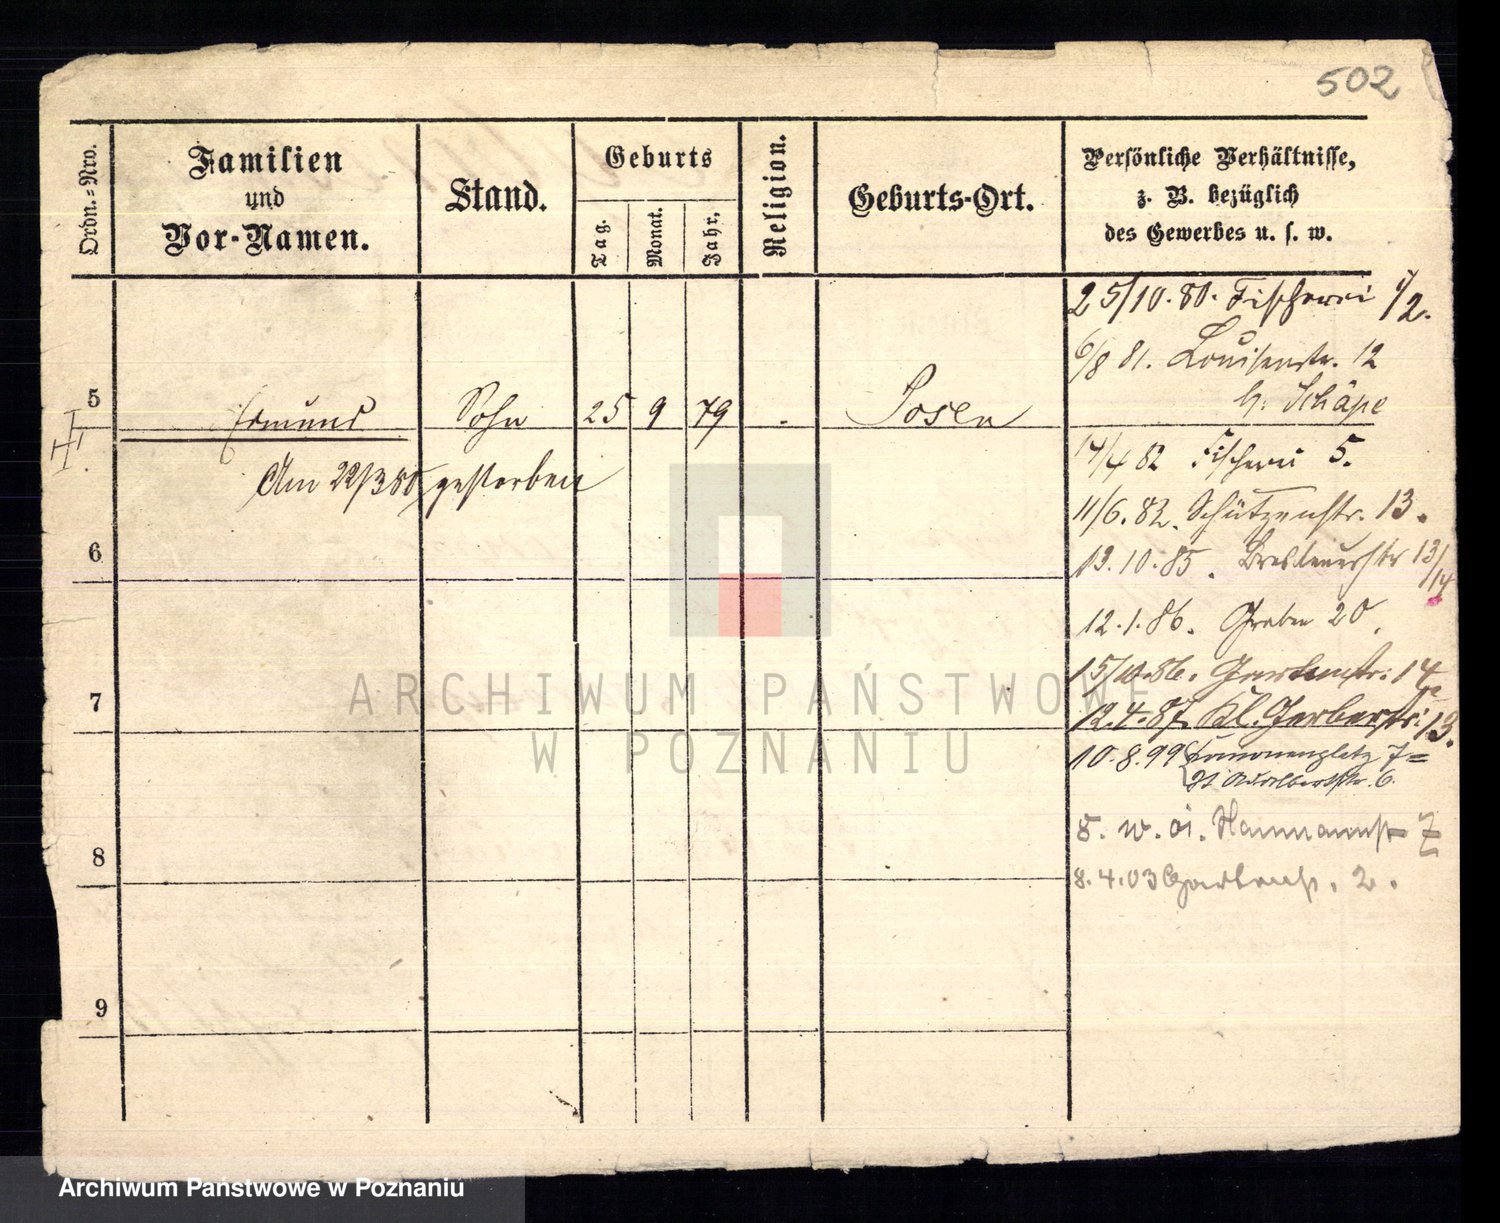 502
Ordn.-Nro.
Familien
und
Vor-Namen.
Stand.
Geburts
Tag.
Monat.
Jahr.
Religion.
Geburts-Ort.
Persönliche Verhältnisse,
z. B. bezüglich
des Gewerbes u. s. w.
25/10.80. Fischerei 1/2.
6/8 81. Louisenstr. 12
b. Schäpe
5 Edmund Sohn 25 9 79 - Posen
Am 22/3 80 gestorben
14/4 82 Fischerei 5.
11/6.82. Schützenstr. 13.
6
13.10.85. Breslauerstr 13/14
12.1.86. Graben 20.
15/10.86. Gartenstr. 14
7
12.4.87 Kl. Gerberstr. 13.
10.8.99 7=
St Adalbertstr. 6.
8
8.4.03 Gartenstr. 2.
9
ARCHIWUM PAŃSTWOWE
W POZNANIU
Archiwum Państwowe w Poznaniu